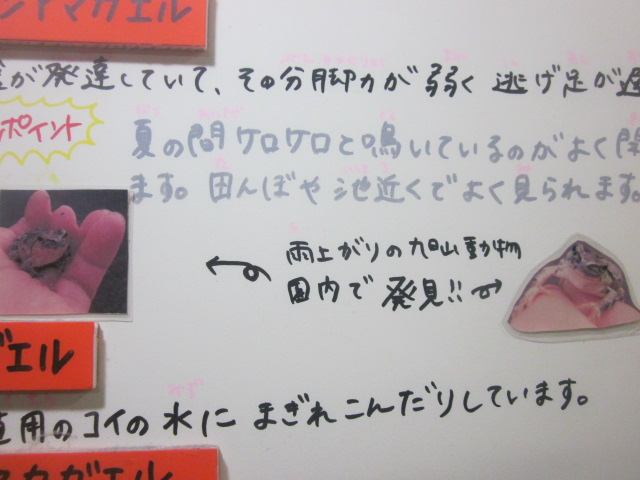 ヤマガエル
が発達していて、その分脚力が弱く 逃げ足が
ポイント
夏の間ケロケロと鳴いているのがよく
ます。田んぼや池近くでよく見られます。
雨上がりの旭山動物
園内で発見!!
ガエル
用のコイの水に まぎれこんだりしています。
カガエル